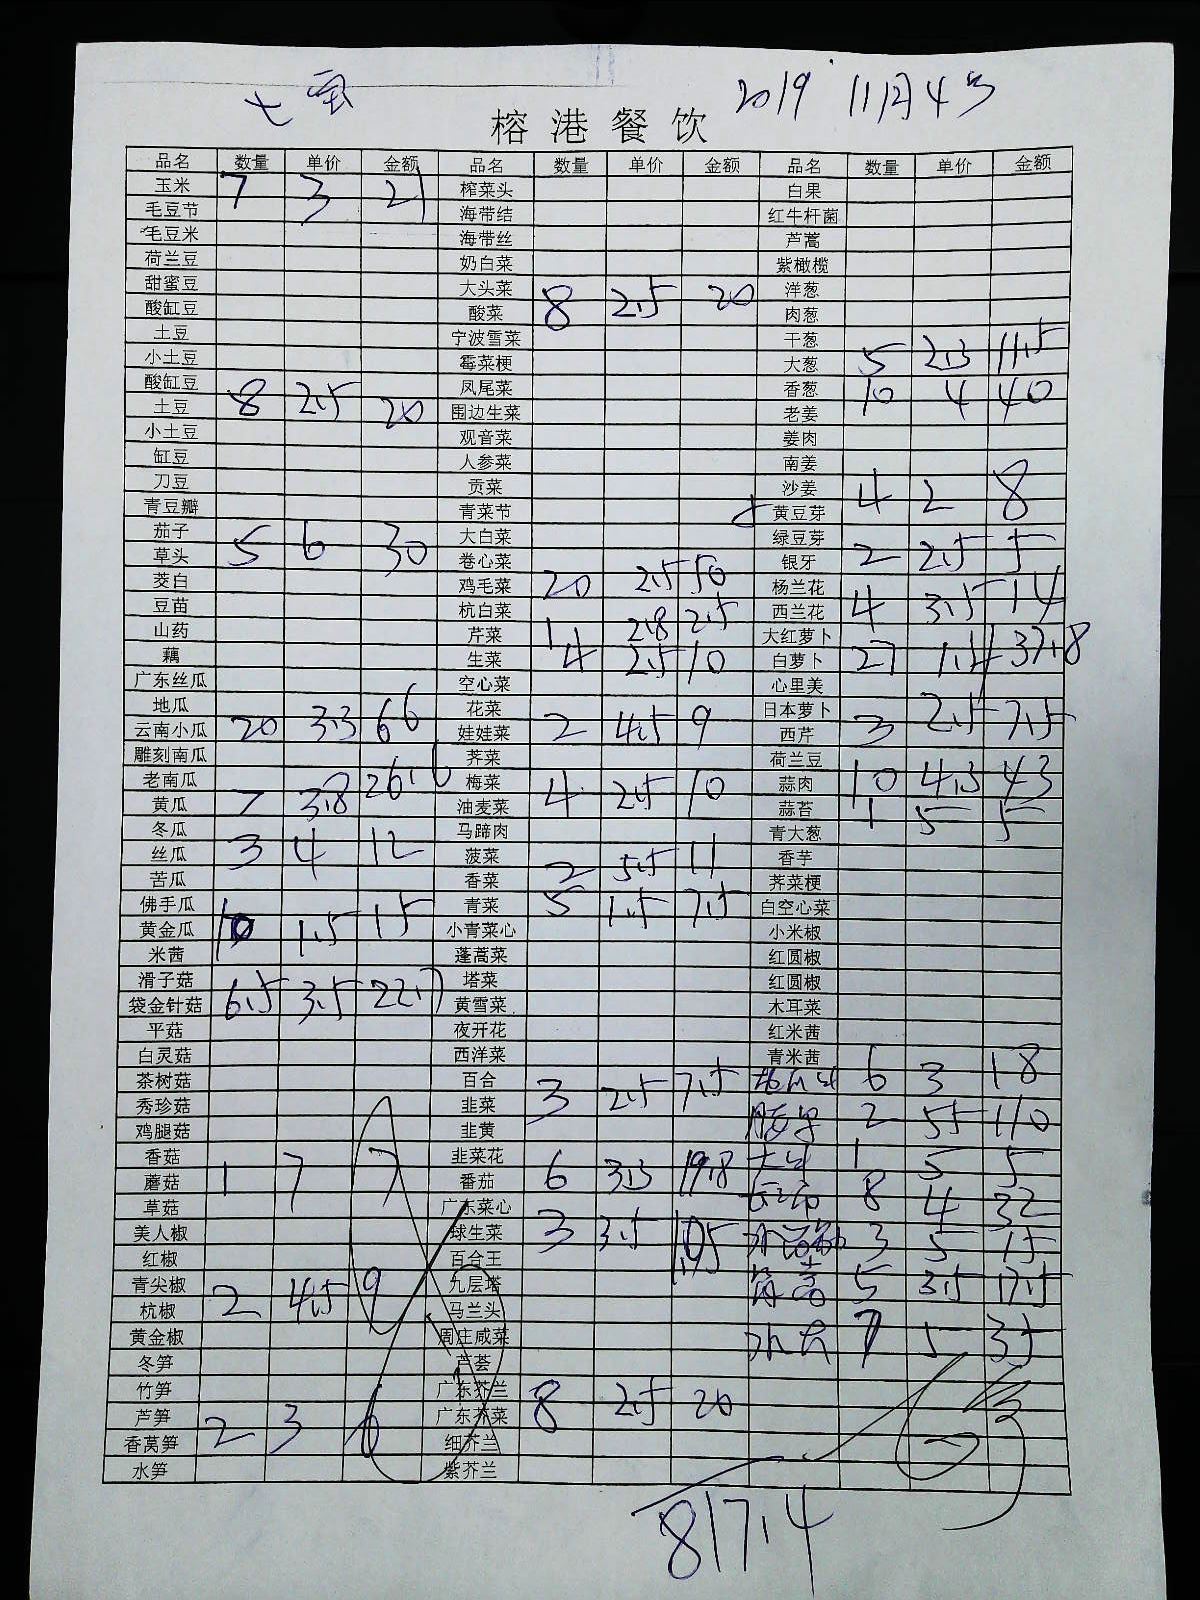 七宝 2019 11月4号
榕港餐饮
品名 数量 单价 金额 品名 数量 单价 金额 品名 数量 单价 金额
玉米 7 3 21 榨菜头 白果
毛豆节 海带结 红牛杆菌
毛豆米 海带丝 芦蒿
荷兰豆 奶白菜 紫橄榄
甜蜜豆 大头菜 8 2.5 20 洋葱
酸缸豆 酸菜 肉葱
土豆 宁波雪菜 干葱
小土豆 霉菜梗 大葱 5 2.3 11.5
酸缸豆 凤尾菜 香葱 10 4 40
土豆 8 2.5 20 围边生菜 老姜
小土豆 观音菜 姜肉
缸豆 人参菜 南姜
刀豆 贡菜 沙姜 4 2 8
青豆瓣 青菜节 黄豆芽
茄子 5 6 30 大白菜 绿豆芽
草头 卷心菜 银牙 2 2.5 5
茭白 鸡毛菜 20 2.5 50 杨兰花
豆苗 杭白菜 西兰花 4 3.5 14
山药 芹菜 1 2.8 2.5 大红萝卜
藕 生菜 4 2.5 10 白萝卜 27 1.4 37.8
广东丝瓜 空心菜 心里美
地瓜 花菜 日本萝卜
云南小瓜 20 3.3 66 娃娃菜 2 4.5 9 西芹 3 2.5 7.5
雕刻南瓜 荠菜 荷兰豆
老南瓜 梅菜 蒜肉 10 4.3 43
黄瓜 7 3.8 26.6 油麦菜 4 2.5 10 蒜苔 1 5 5
冬瓜 马蹄肉 青大葱
丝瓜 3 4 12 菠菜 香芋
苦瓜 香菜 2 5.5 11 荠菜梗
佛手瓜 青菜 5 1.5 7.5 白空心菜
黄金瓜 10 1.5 15 小青菜心 小米椒
米茜 蓬蒿菜 红圆椒
滑子菇 塔菜 红圆椒
袋金针菇 6.5 3.5 22.7 黄雪菜 木耳菜
平菇 夜开花 红米茜
白灵菇 西洋菜 青米茜
茶树菇 百合 6 3 18
秀珍菇 韭菜 3 2.5 7.5 2 55 110
鸡腿菇 韭黄
香菇 韭菜花 1 5 5
蘑菇 1 7 7 番茄 6 3.3 19.8
草菇 广东菜心 8 4 32
美人椒 球生菜 3 3.5 10.5 3 5 15
红椒 百合王
青尖椒 九层塔 5 3.5 17.5
杭椒 2 4.5 9 马兰头
黄金椒 周庄咸菜 7 5 35
冬笋 芦荟
竹笋 广东芥兰
芦笋 2 3 6 广东芥菜 8 2.5 20
香莴笋 细芥兰
水笋 紫芥兰
817.4